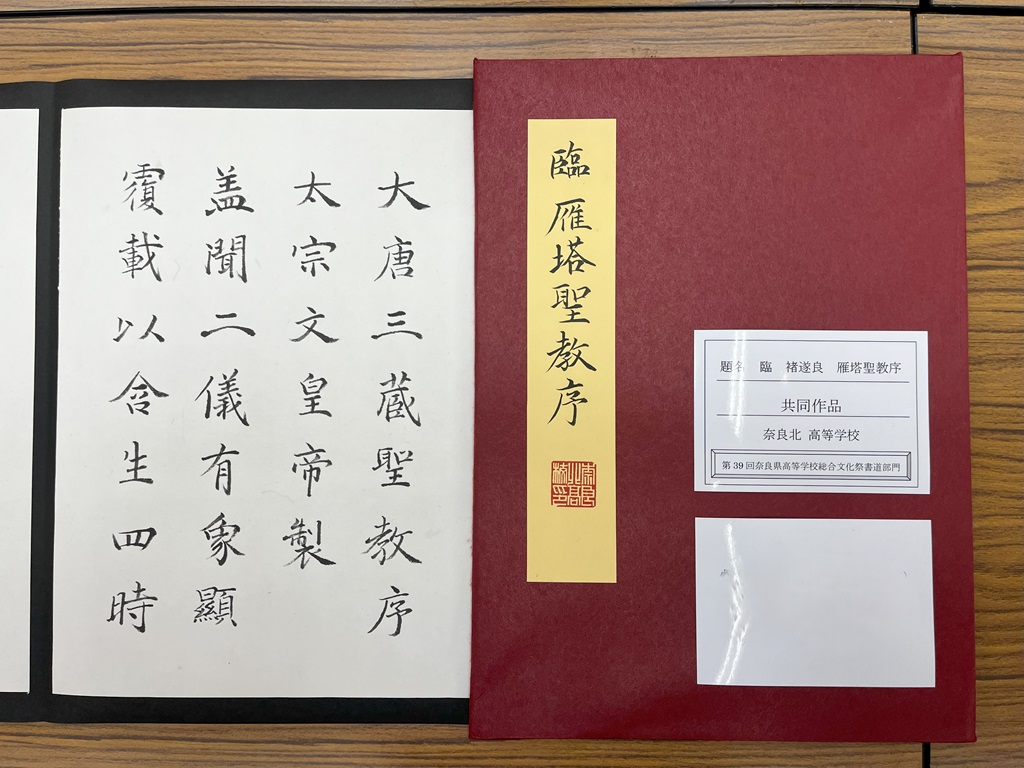 臨 雁塔聖教序
題名 臨 褚遂良 雁塔聖教序
共同作品
奈良北 高等学校
第39回奈良県高等学校総合文化祭書道部門
大唐三蔵聖教序
太宗文皇帝製
盖聞二儀有象顯
覆載以含生四時